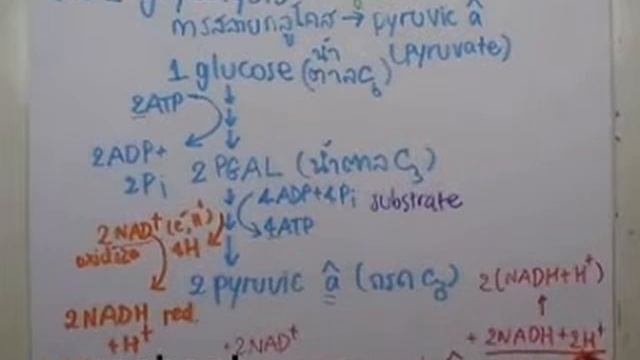 การสลายกลูโคส → pyruvic â
(pyruvate)
1 glucose (น้ำตาล C6)
2ATP
2ADP+
2Pi
2 PGAL (น้ำตาล C3)
4ADP+4Pi substrate
4ATP
2NAD+ (e-, H+)
oxidize 4H
2 pyruvic â (กรด C3)
2(NADH+H+)
↑
2NADH red.
+H+
+2NAD+
+ 2NADH+2H+